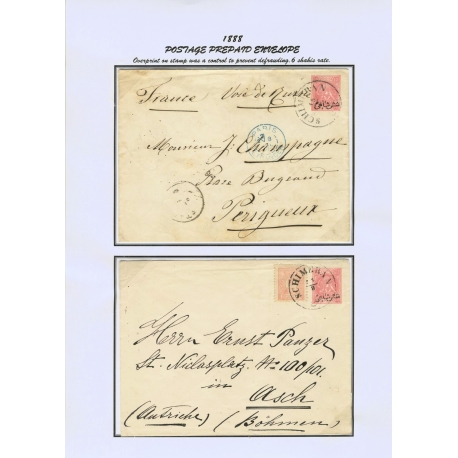 1888
POSTAGE PREPAID ENVELOPE
Overprint on stamp was a control to prevent defrauding. 6 shahis rate.
France Voie de Russie
Monsieur J. Champagne
Place Bugeaud
Périgueux
SCHIMERAN
Herrn Ernst Panzer
St. Niclasplatz No 100/01.
in
Asch
(Autriche) (Böhmen)